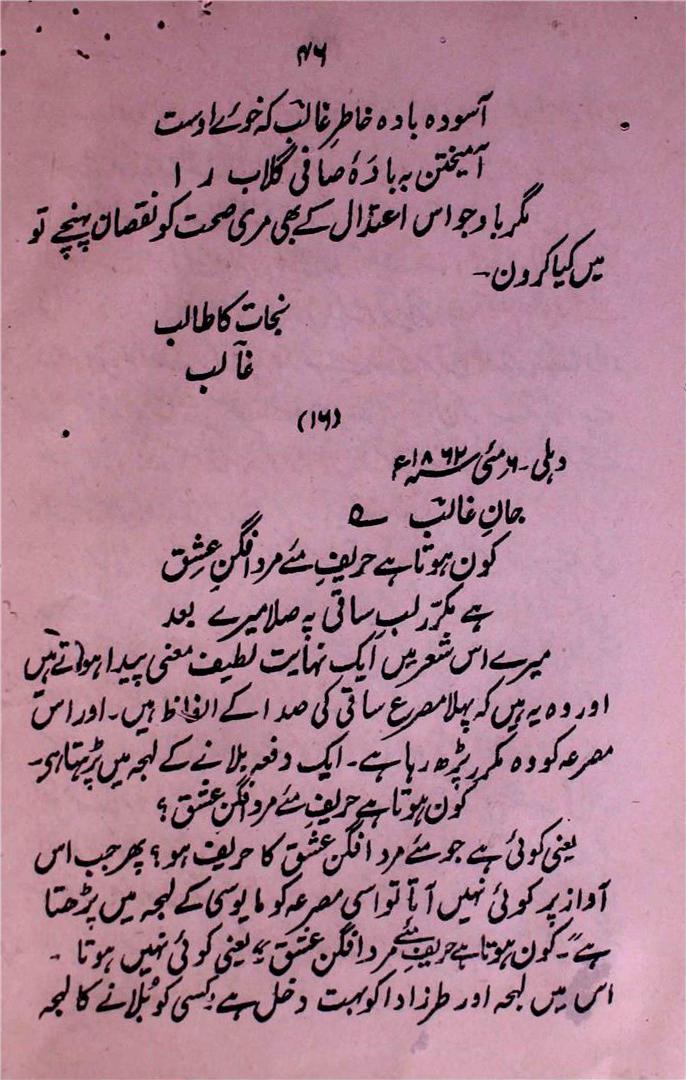 ۴۶
آسودہ بادہ خاطرِ غالبؔ کہ خوئے اوست
آمیختن بہ بادۂ صافی گلاب را
مگر باوجود اس اعتدال کے بھی مری صحت کو نقصان پہنچے تو
میں کیا کرون۔
نجات کا طالب
غالب
(۱۶)
دہلی۔ ۶ مئی ۱۸۶۲ء
جانِ غالبؔ ؎
کون ہوتا ہے حریفِ مئے مرد افگنِ عشق
ہے مکرّر لبِ ساقی پہ صلا میرے بعد
میرے اس شعر میں ایک نہایت لطیف معنی پیدا ہوتے ہیں
اور وہ یہ ہیں کہ پہلا مصرع ساقی کی صدا کے الفاظ ہیں۔ اور اس
مصرعہ کو وہ مکرر پڑھ رہا ہے۔ ایک دفعہ بلانے کے لہجہ میں پڑہتا ہی۔
کون ہوتا ہے حریفِ مئے مرد افگنِ عشق؟
یعنی کوئی ہے جو مئے مرد افگنِ عشق کا حریف ہو؟ پھر جب اس
آواز پر کوئی نہیں آتا تو اسی مصرعہ کو مایوسی کے لہجہ میں پڑھتا
ہے"۔ کون ہوتا ہے حریفِ مئے مرد افگن عشق"، یعنی کوئی نہیں ہوتا ۔
اس میں لہجہ اور طرز ادا کو بہت دخل ہے کسی کو بُلانے کا لہجہ